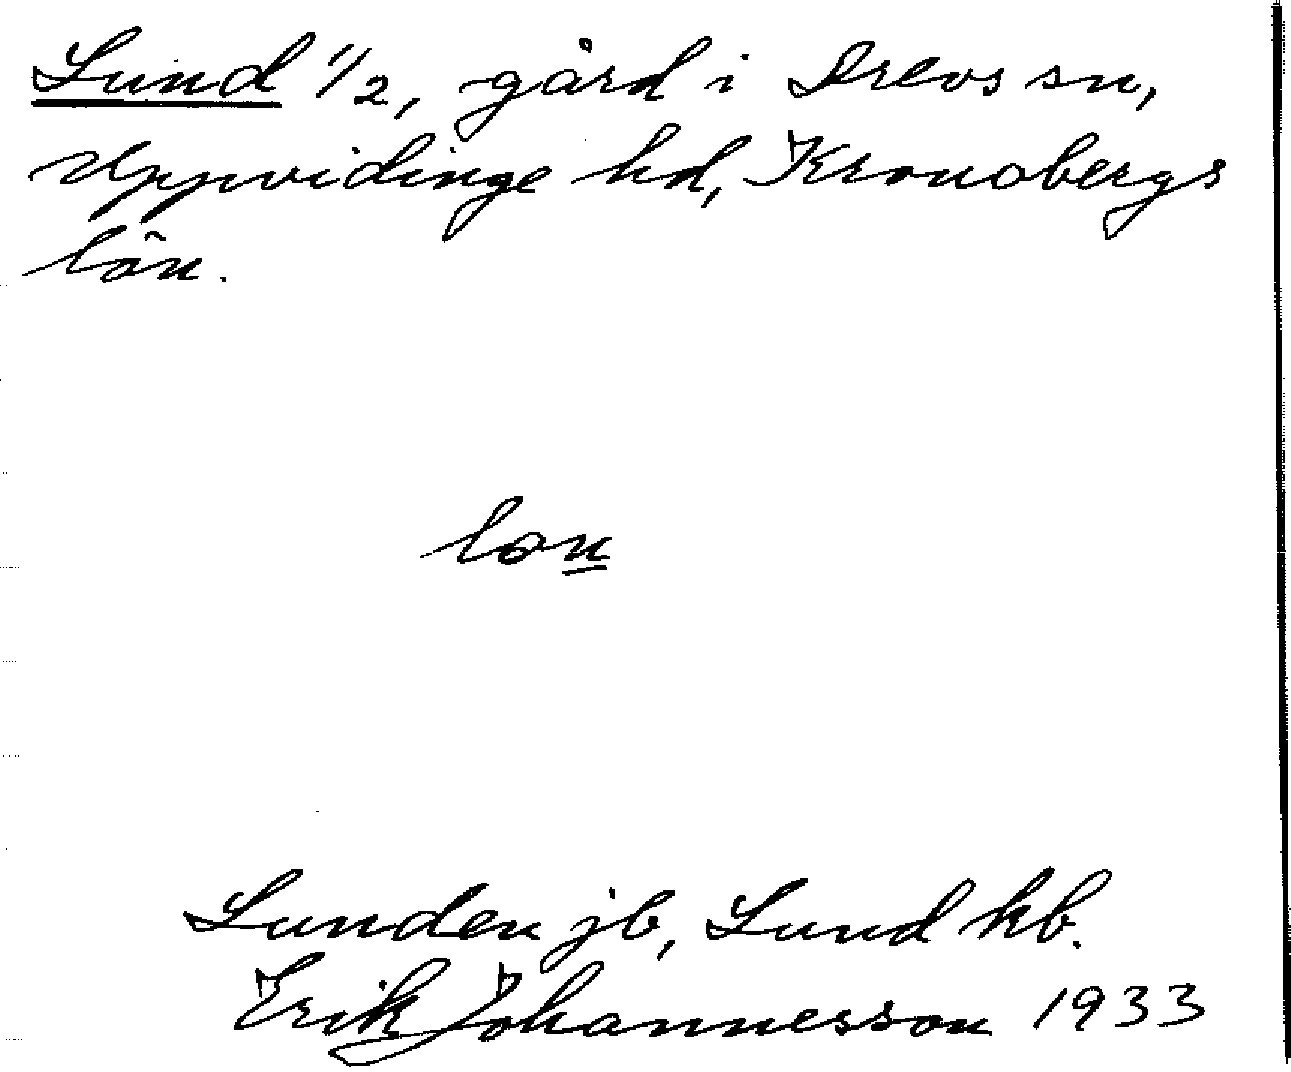 Lund 1/2, gård i Drevs sn,
Uppvidinge hd, Kronobergs
län.
lon
Lunden jb, Lund kb.
Erik Johannesson 1933